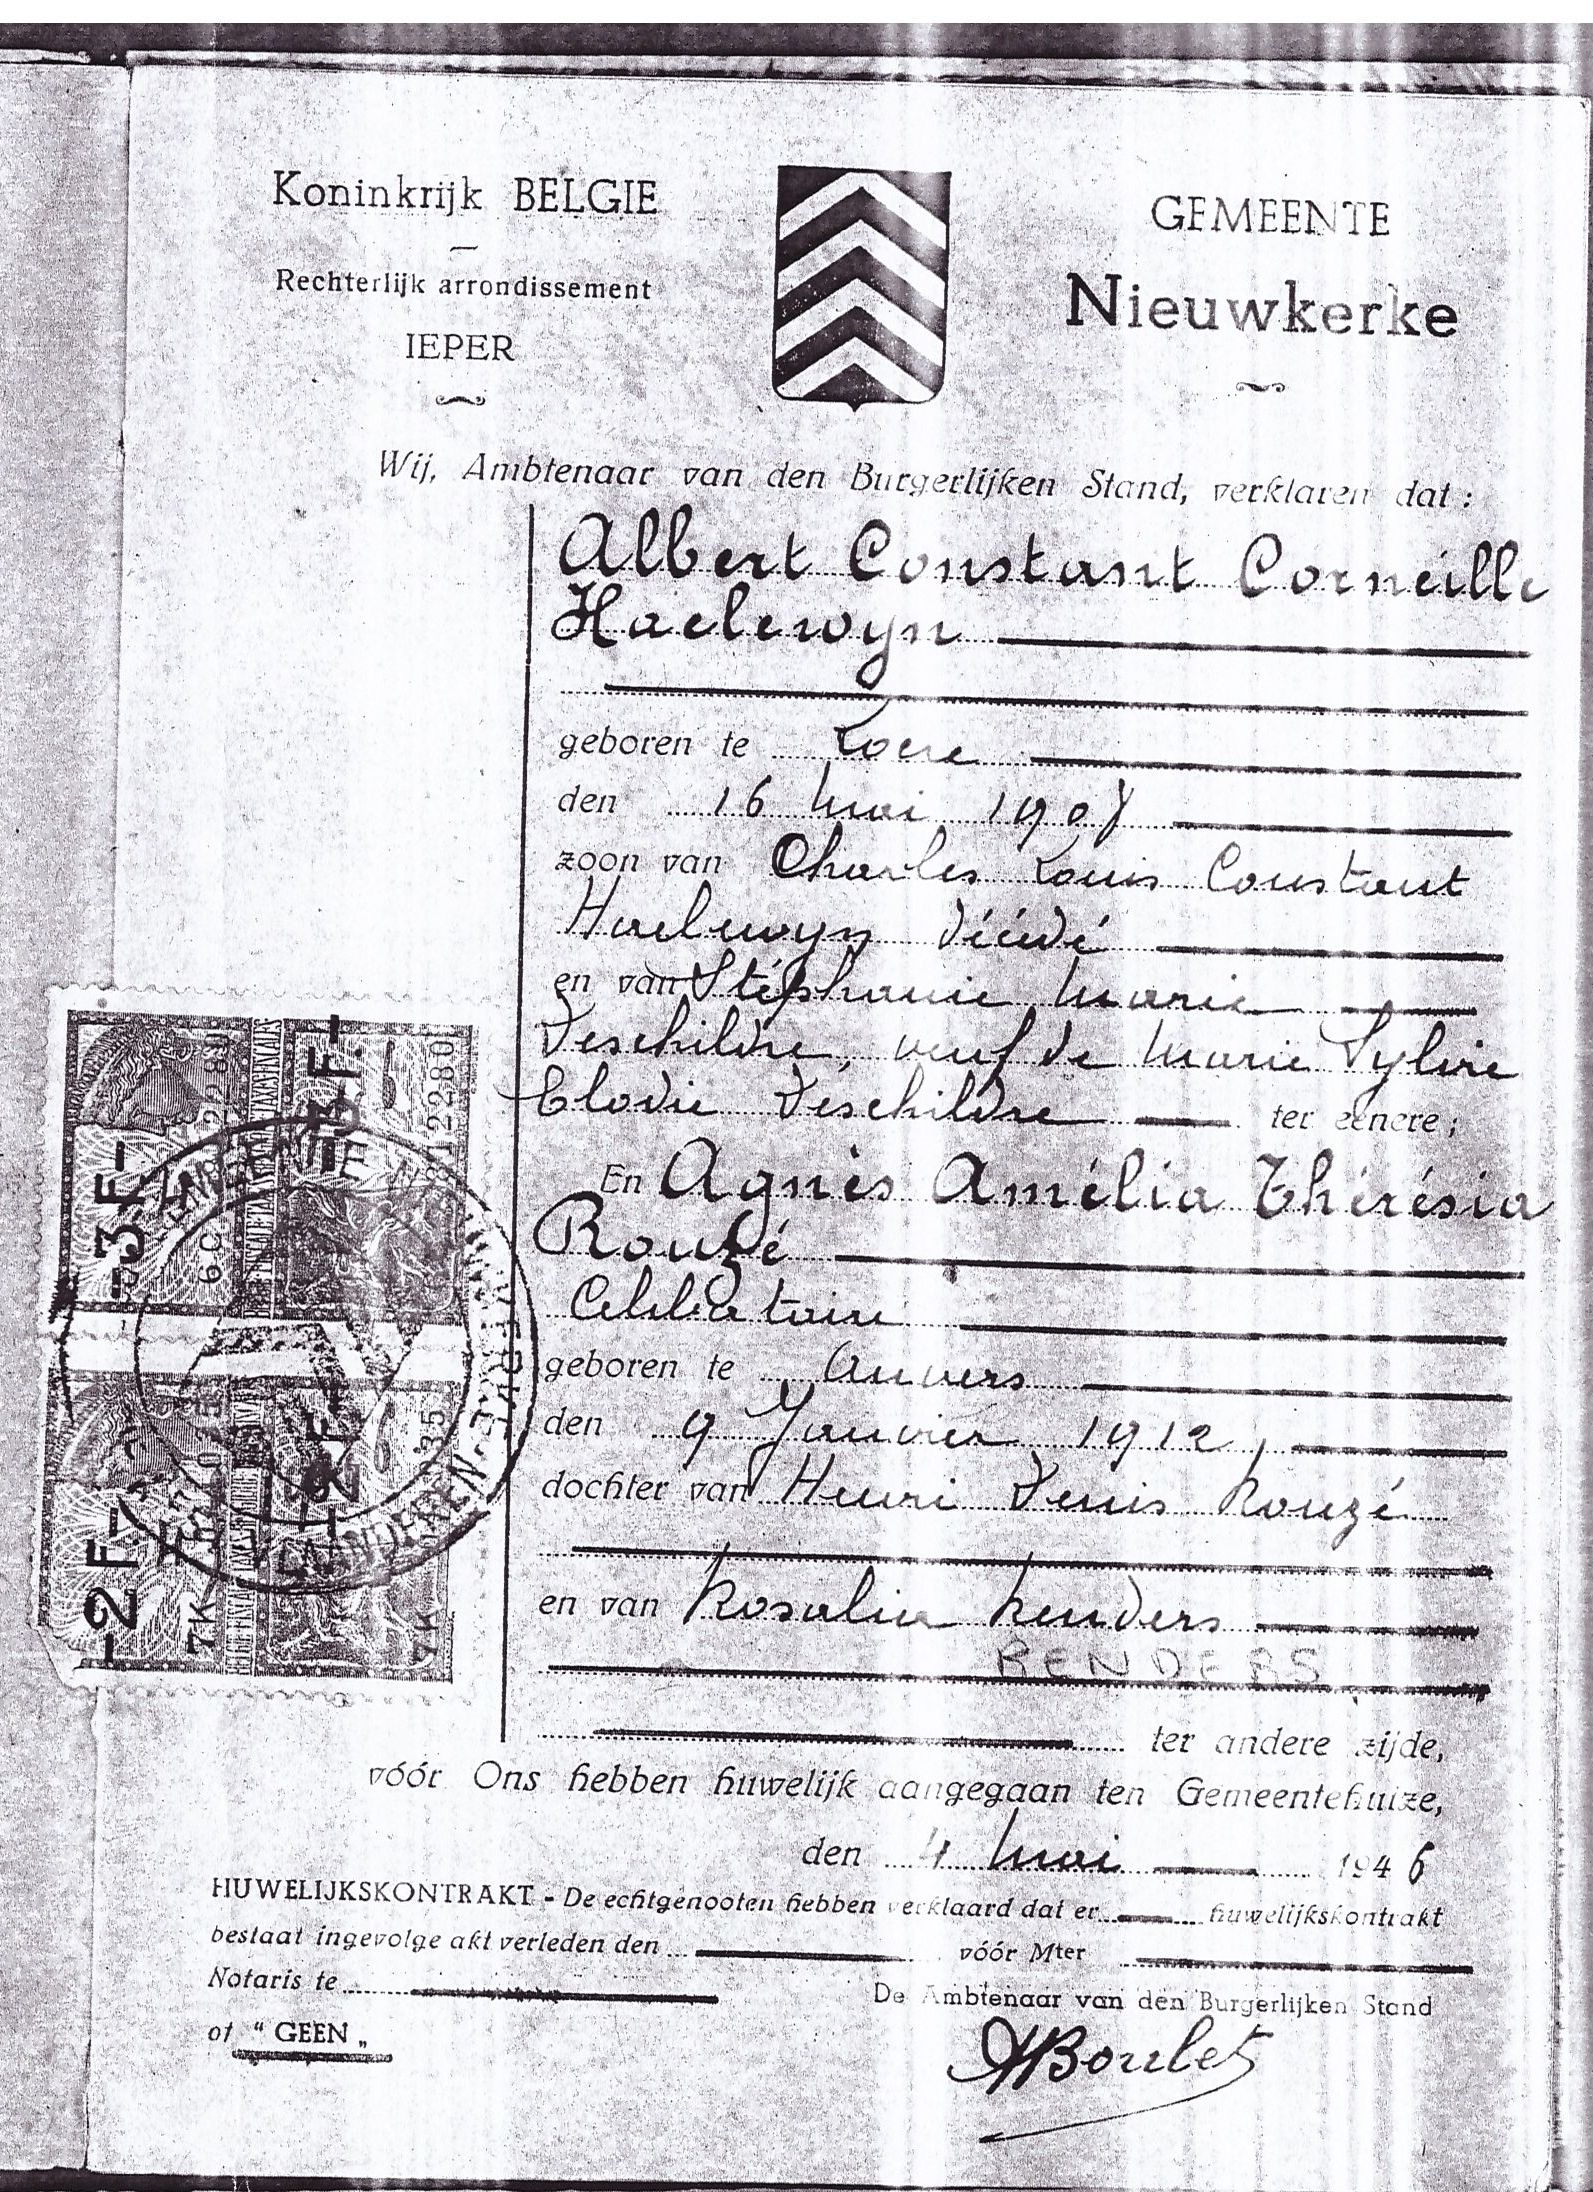 Koninkrijk BELGIE
Rechterlijk arrondissement
IEPER
GEMEENTE
Nieuwkerke
Wij, Ambtenaar van den Burgerlijken Stand, verklaren dat :
Albert Constant Corneille
Haelewyn
geboren te Locre
den 16 Mai 1908
zoon van Charles Louis Constant
Haelewyn décédé
en van Stéphanie Marie
Deschildre, veuf de Marie Sylvie
Elodie Deschildre ter eenere ;
En Agnès Amélia Thérésia
Rouzé
Célibataire
geboren te Anvers
den 9 Janvier 1912,
dochter van Henri Denis Rouzé
en van Rosalie Renders
RENDERS
ter andere zijde,
vóór Ons hebben huwelijk aangegaan ten Gemeentehuize,
den 4 Mai 1946
HUWELIJKSKONTRAKT - De echtgenooten hebben verklaard dat er huwelijkskontrakt
bestaat ingevolge akt verleden den vóór Mter
Notaris te
of " GEEN „
De Ambtenaar van den Burgerlijken Stand
HBoulet
-3F-
-3F-
812280
-2F-
-2F-
7K
7K
VLAANDEREN